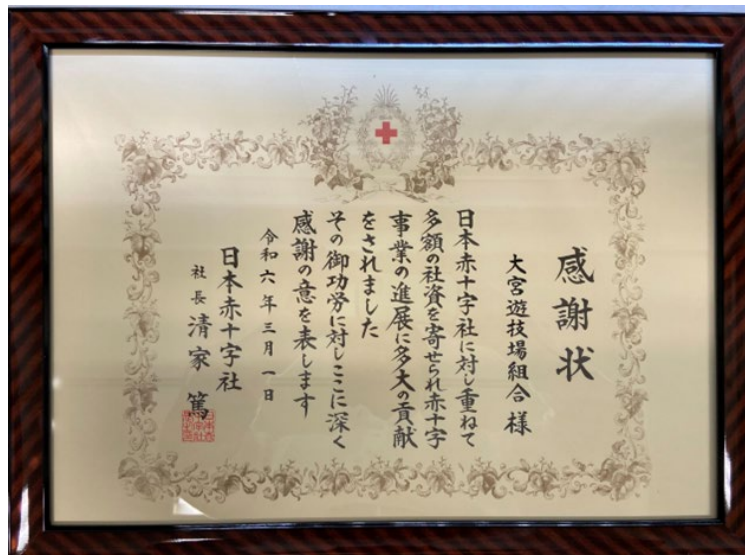 感謝状
大宮遊技場組合 様
日本赤十字社に対し重ねて
多額の社資を寄せられ赤十字
事業の進展に多大の貢献
をされました
その御功労に対しここに深く
感謝の意を表します
令和六年三月一日
日本赤十字社
社長 清家 篤